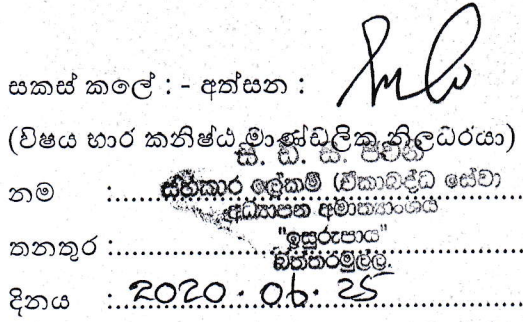 සකස් කලේ : - අත්සන :
(විෂය භාර කනිෂ්ඨ මාණ්ඩලික නිලධරයා)
සී. ඩී. සී.
නම : සහකාර ලේකම් (ඒකාබද්ධ සේවා
අධ්‍යාපන අමාත්‍යාංශය
"ඉසුරුපාය"
තනතුර :
බත්තරමුල්ල.
දිනය : 2020. 06. 25